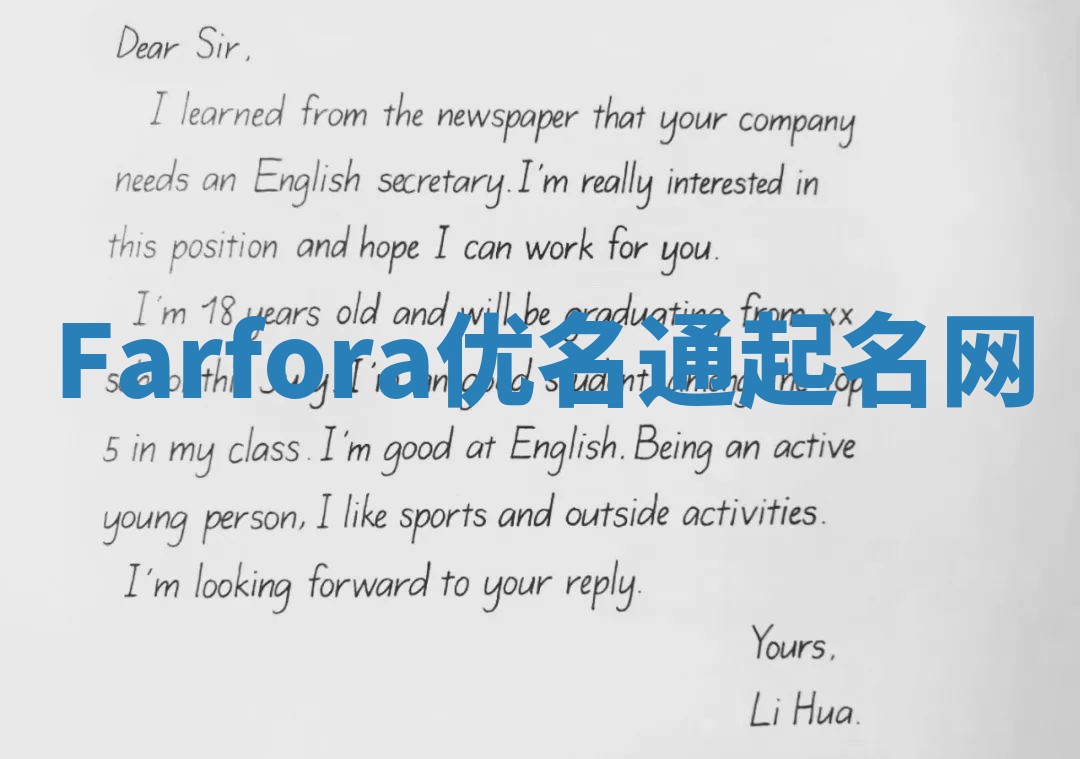 Dear Sir,
I learned from the newspaper that your company
needs an English secretary. I'm really interested in
this position and hope I can work for you.
I'm 18 years old and will be graduating from xx
Farfora优名通起名网
July I'm good student, among the top
5 in my class. I'm good at English. Being an active
young person, I like sports and outside activities.
I'm looking forward to your reply.
Yours,
Li Hua.